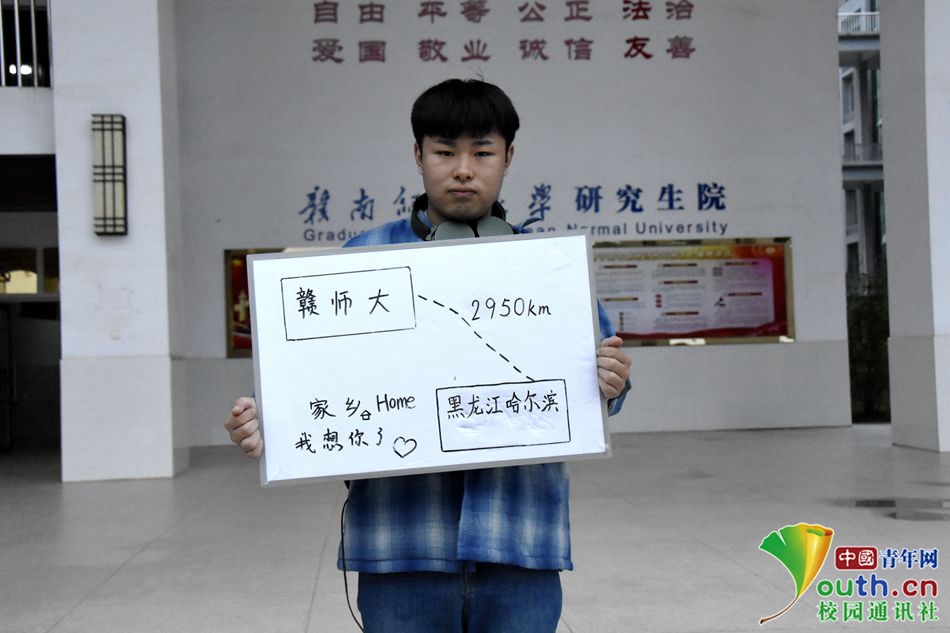 自由 平等 公正 法治
爱国 敬业 诚信 友善
赣南 学研究生院
Normal University
赣师大
2950km
黑龙江哈尔滨
家乡 Home
我想你了
中國青年网
Youth.cn
校园通讯社